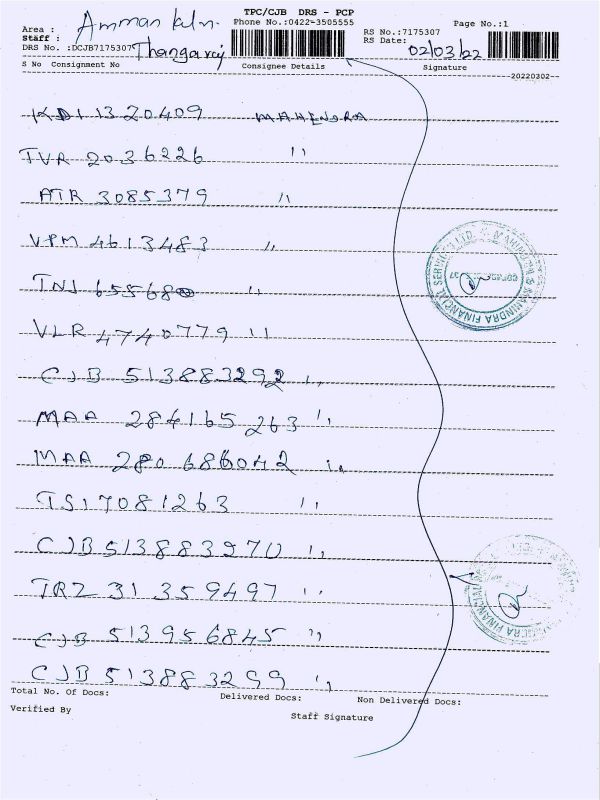 TPC/CJB DRS - PCP
Phone No.:0422-3505555 Page No.:1
Area : Amman kln. RS No.:7175307
Staff : Thangaraj RS Date: 02/03/22
DRS No. :DCJB7175307
S No Consignment No Consignee Details Signature
20220302
KDI 1320409 MAHENDRA
TVR 2036226 "
ATR 3085379 "
VPM 4613483 "
TNJ "
VLR 4740779 "
CJB 513883292 "
MAA 284165263 "
MAA 280686042 "
TSI 7081263 "
CJB 513883270 "
TRZ 31359497 "
CJB 513956845 "
CJB 513883299 "
MAHINDRA & MAHINDRA FINANCIAL SERVICES LTD.
Total No. Of Docs: Delivered Docs: Non Delivered Docs:
Verified By Staff Signature